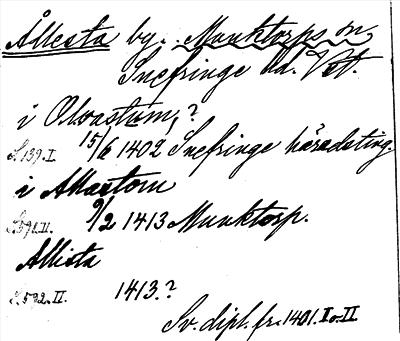 Ållesta by. Munktorps sn
Snefringe hd. Vst.
i Olvastum, ?
S.139.I. 15/6 1402 Snefringe häradsting.
i Allastom
S.591.II. 9/2 1413 Munktorp.
Allista
S.592.II. 1413.?
Sv. dipl. fr. 1401. I o. II